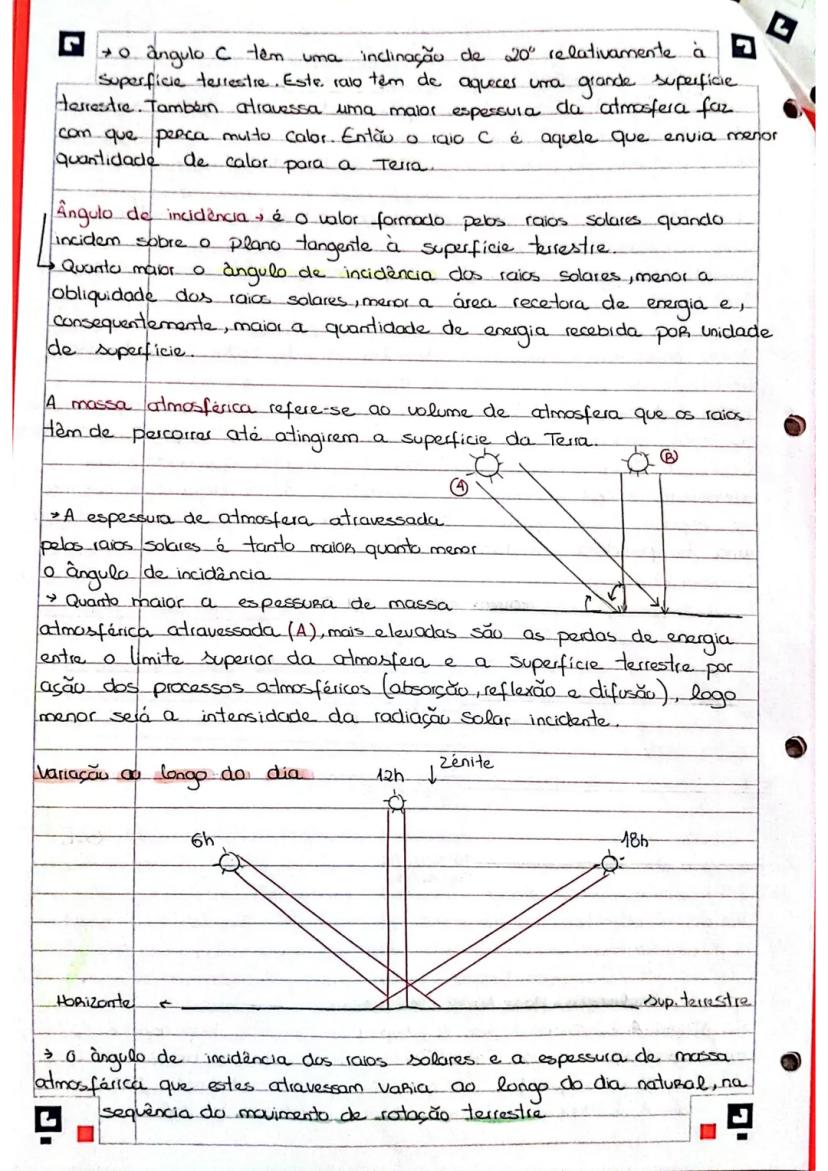 → O ângulo C têm uma inclinação de 20° relativamente à
superfície terrestre. Este raio têm de aquecer uma grande superfície
terrestre. Também atravessa uma maior espessura da atmosfera faz
com que perca muito calor. Então o raio C é aquele que envia menor
quantidade de calor para a Terra.
Ângulo de incidência → é o valor formado pelos raios solares quando
incidem sobre o plano tangente à superfície terrestre.
→ Quanto maior o ângulo de incidência dos raios solares, menor a
obliquidade dos raios solares, menor a área recetora de energia e,
consequentemente, maior a quantidade de energia recebida por unidade
de superfície.
A massa atmosférica refere-se ao volume de atmosfera que os raios
têm de percorrer até atingirem a superfície da Terra.
A
B
→ A espessura de atmosfera atravessada
pelos raios solares é tanto maior quanto menor
o ângulo de incidência
→ Quanto maior a espessura de massa
atmosférica atravessada (A), mais elevadas são as perdas de energia
entre o limite superior da atmosfera e a superfície terrestre por
ação dos processos atmosféricos (absorção, reflexão e difusão), logo
menor será a intensidade da radiação solar incidente.
Variação ao longo do dia
12h ↓ Zénite
6h
18h
Horizonte ←
Sup. terrestre
→ O ângulo de incidência dos raios solares e a espessura de massa
atmosférica que estes atravessam varia ao longo do dia natural, na
sequência do movimento de rotação terrestre